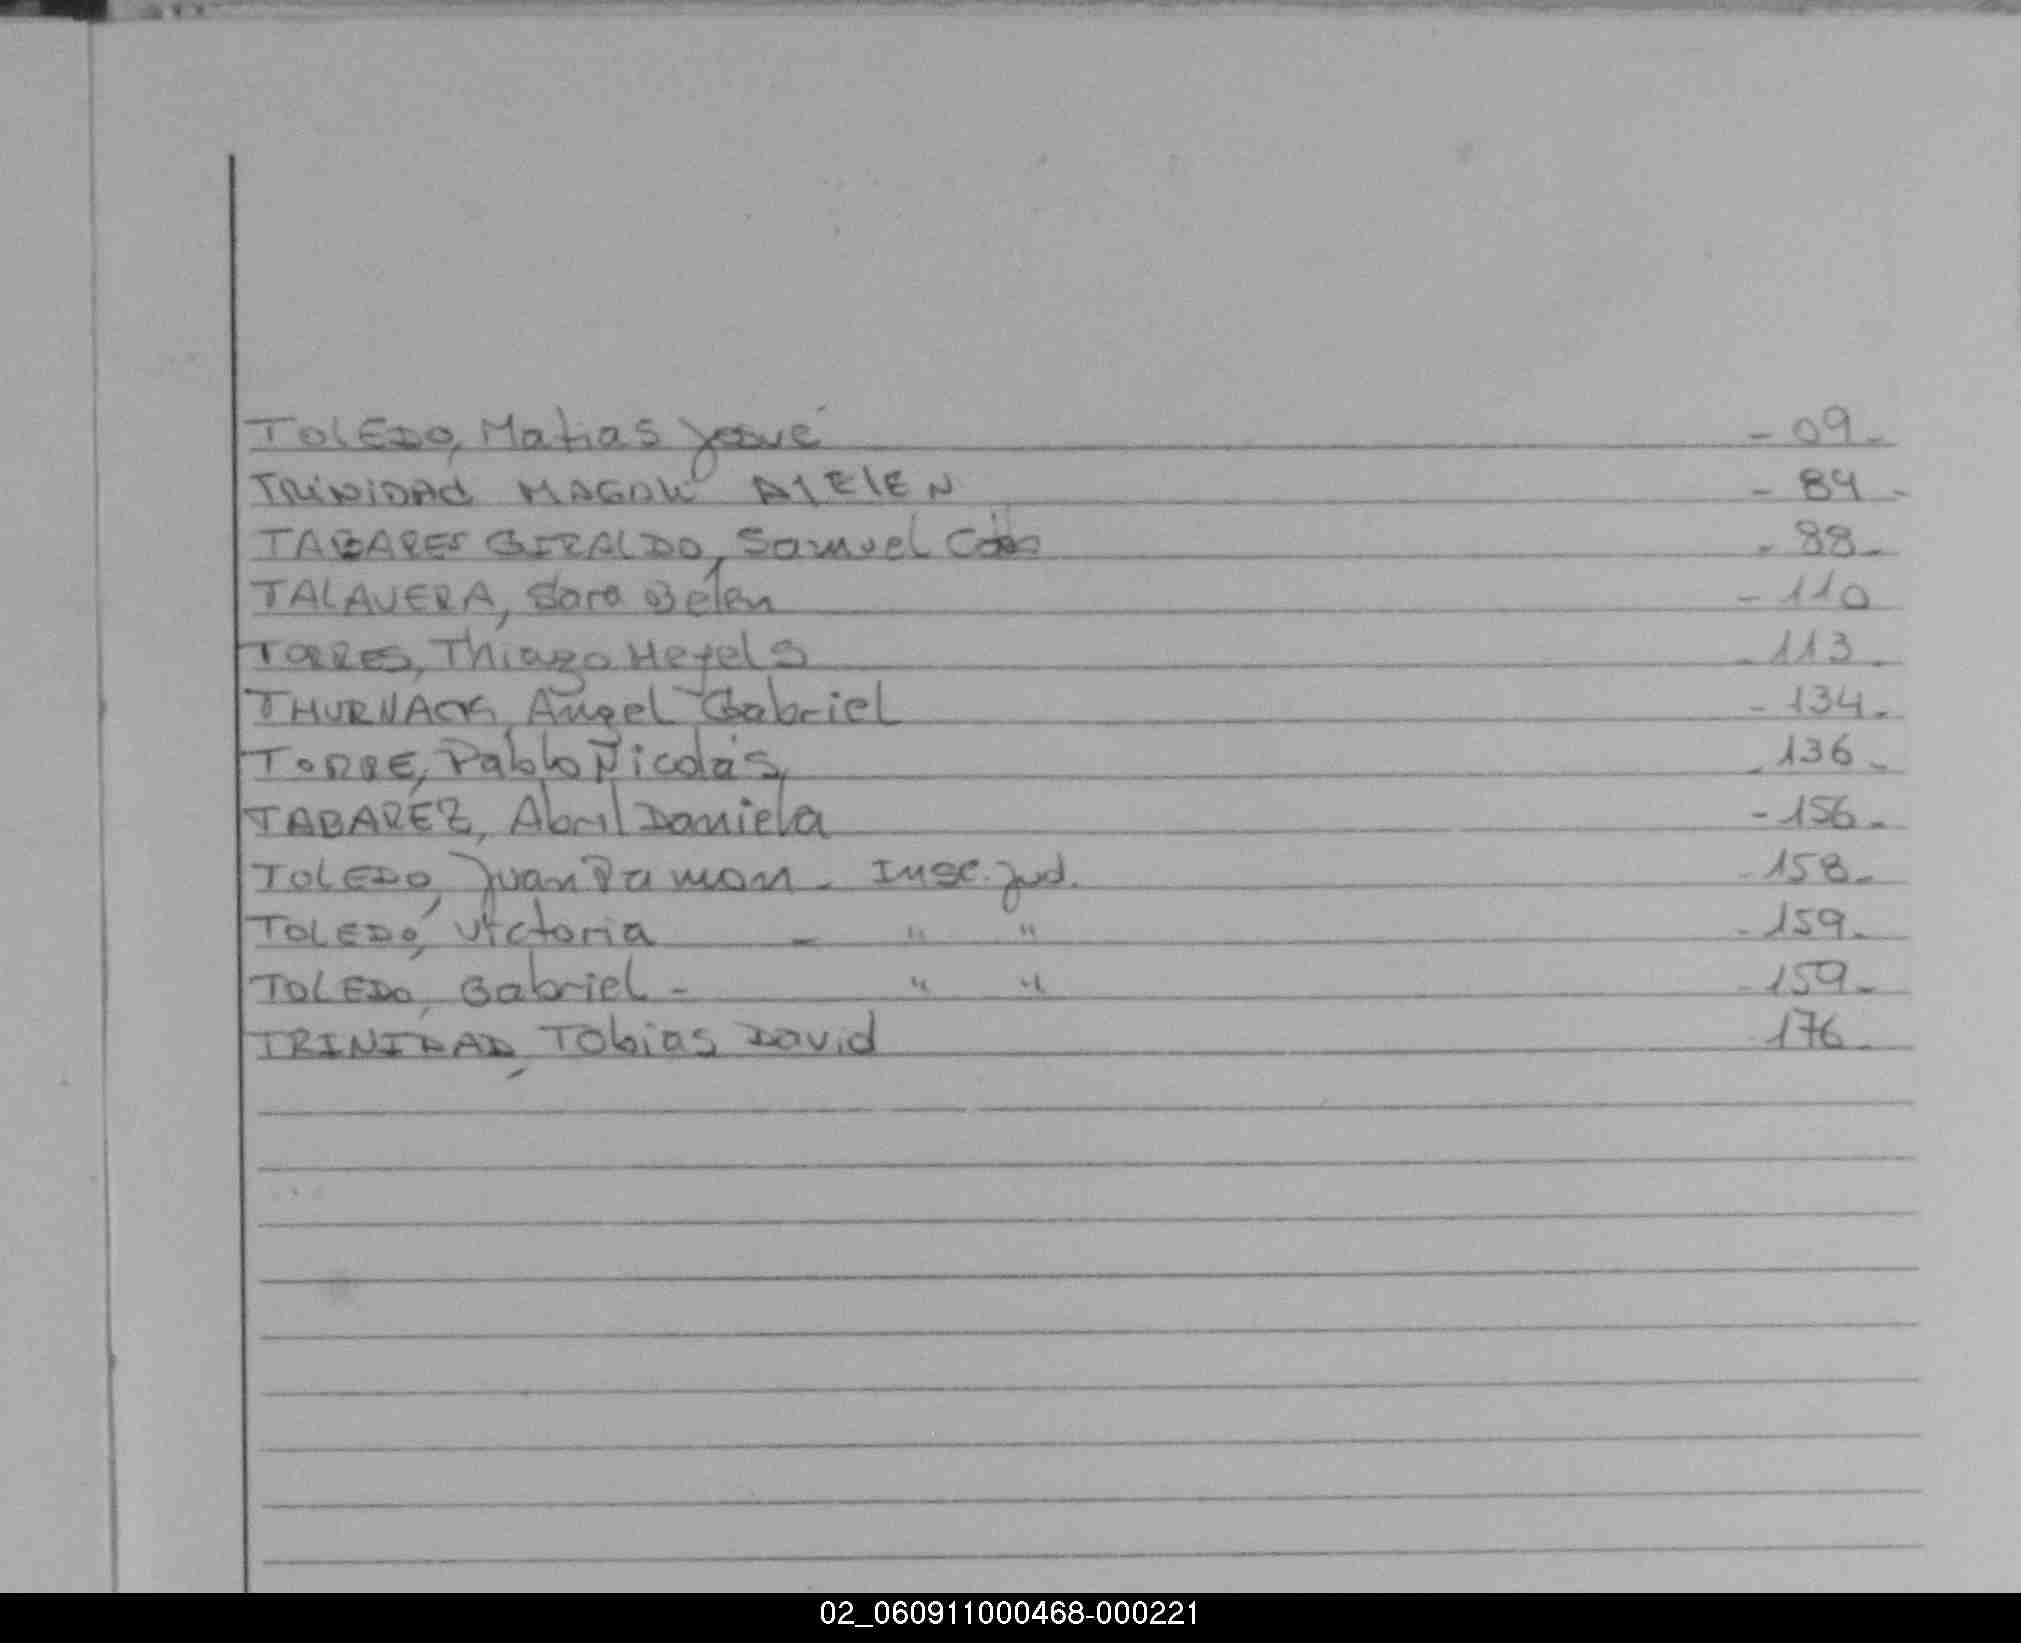 TOLEDO, Matias Josué - 09 -
TRINIDAD MAGALI AIELEN - 84 -
TABARES GIRALDO, Samuel - 88 -
TALAVERA, Sara Belén - 110
TORRES, Thiago - 113 -
THURNACK, Angel Gabriel - 134 -
TORRE, Pablo Nicolás, - 136 -
TABAREZ, Abril Daniela - 156 -
TOLEDO, Juan Ramon - Insc. Jud. - 158 -
TOLEDO, Victoria - " " - 159 -
TOLEDO, Gabriel - " " - 159 -
TRINIDAD, Tobias David 176 -
02_060911000468-000221